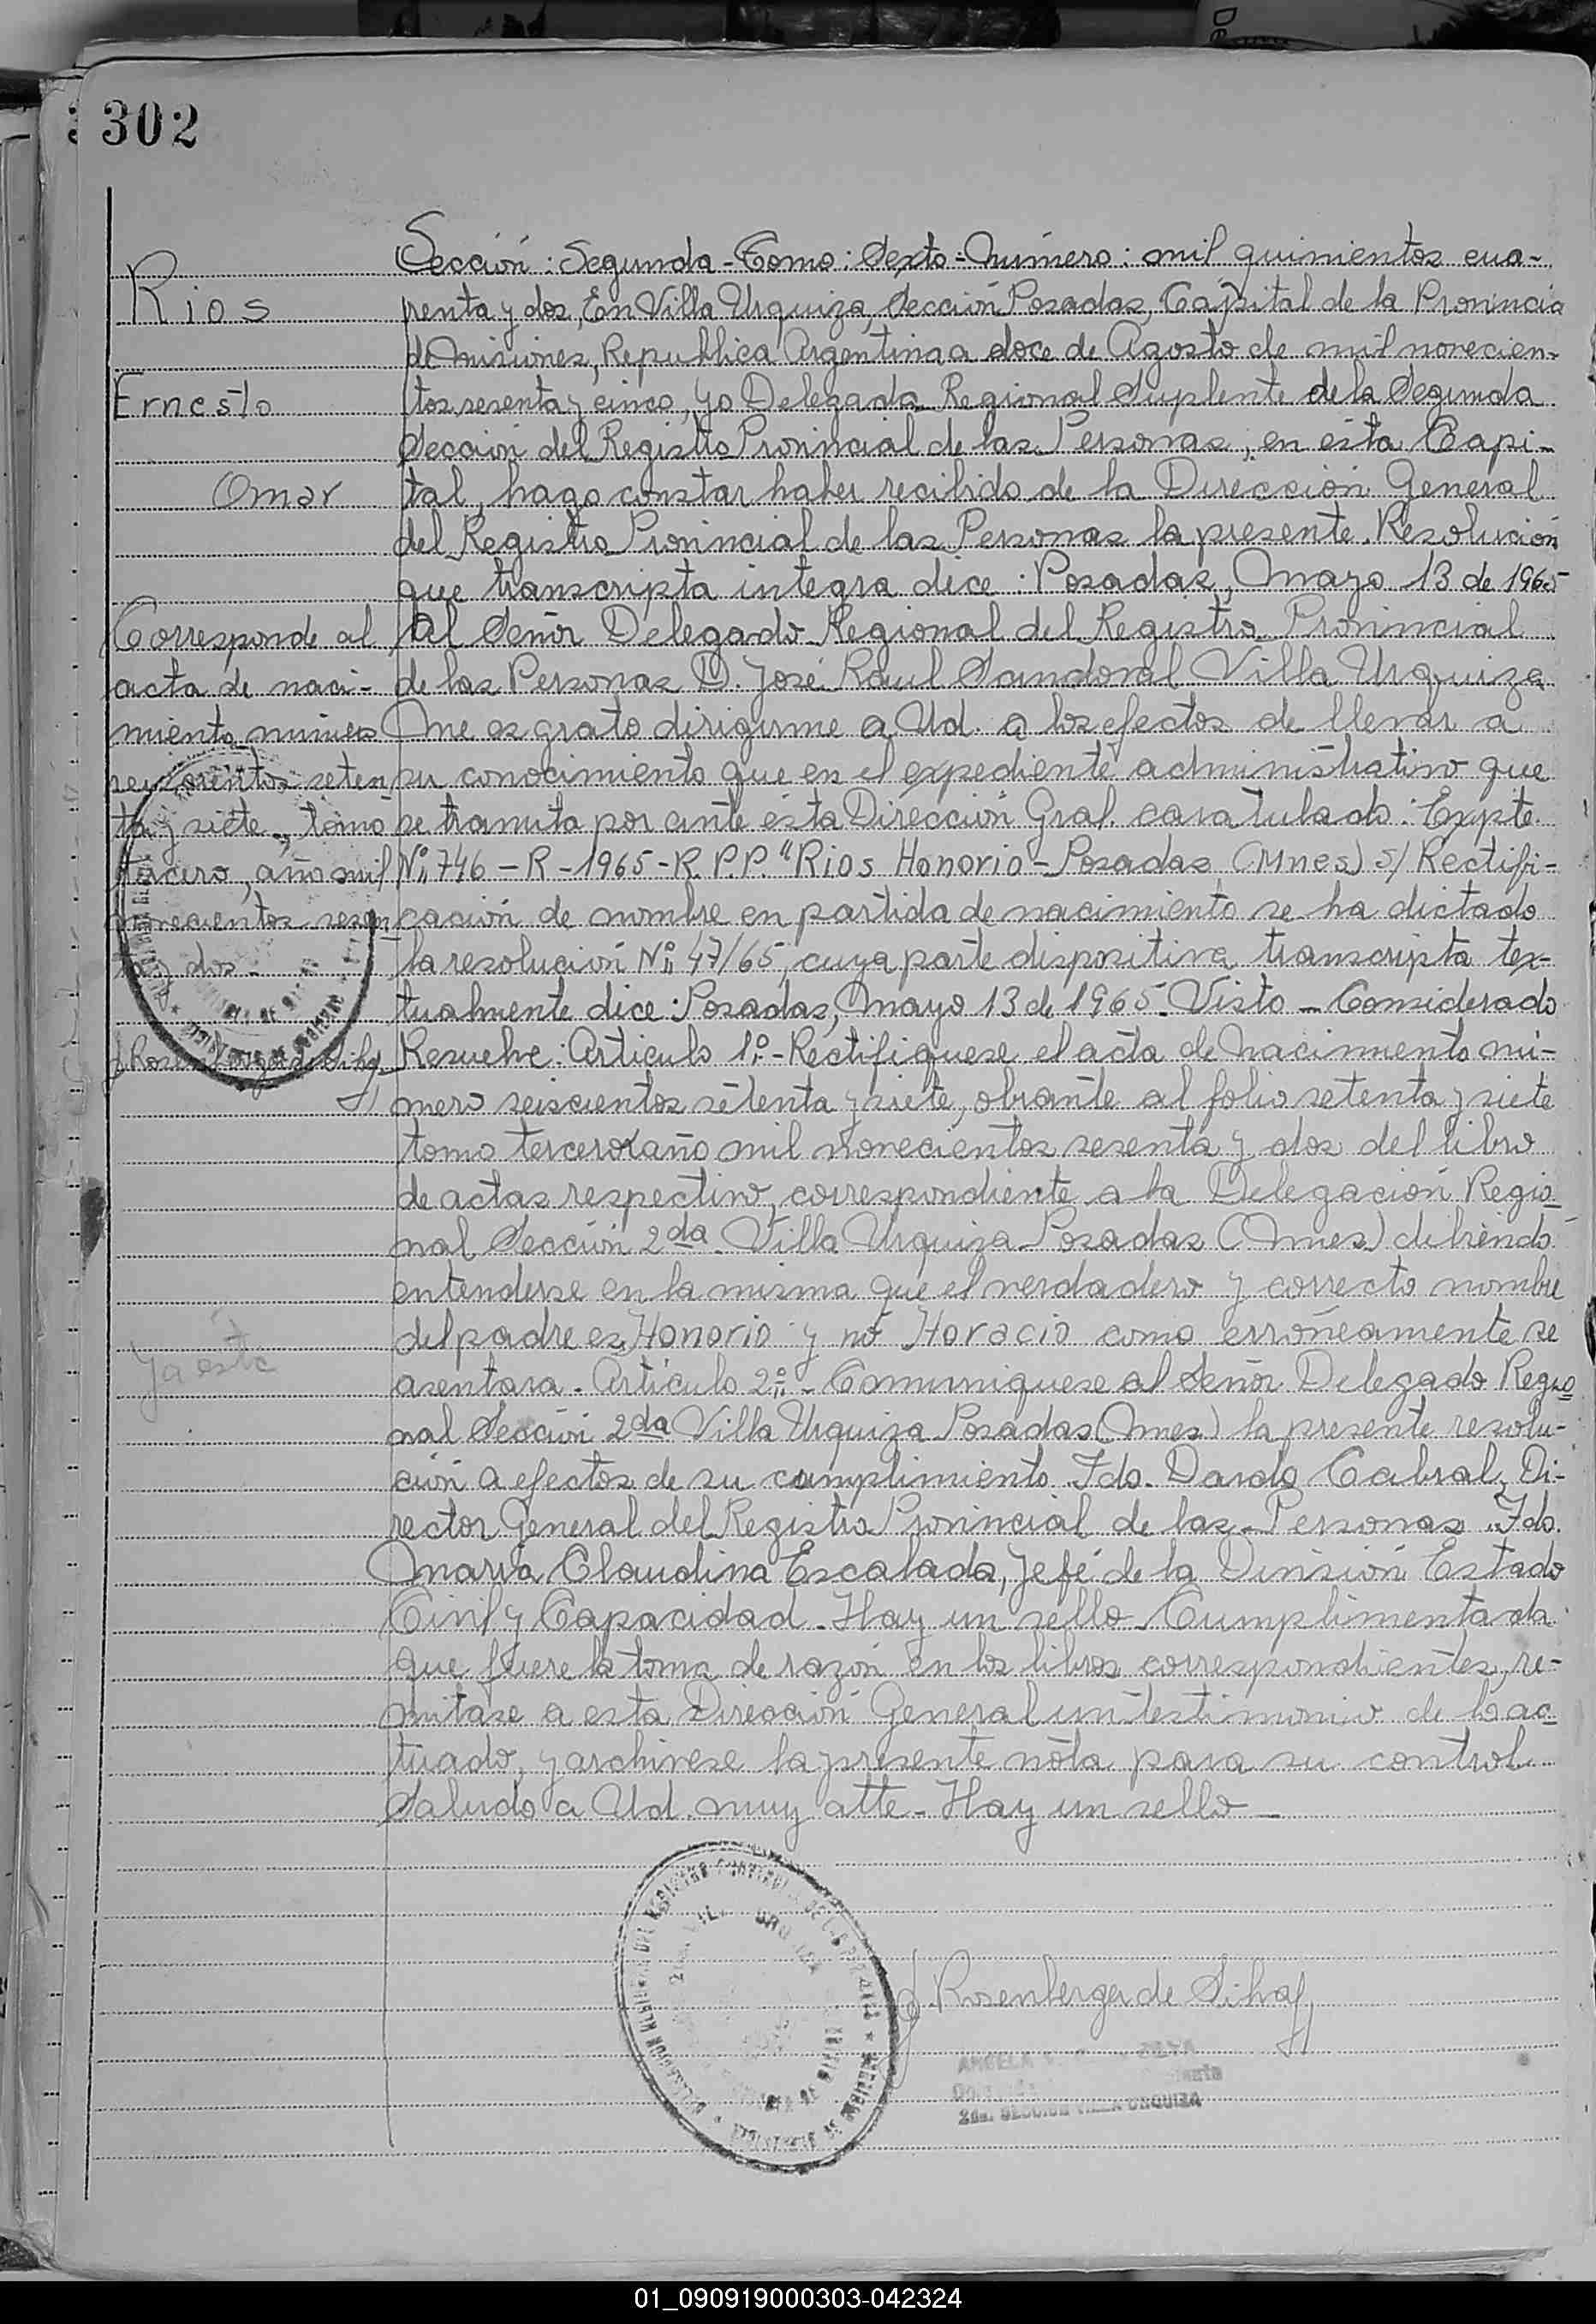 302
Rios
Ernesto
Omar
Corresponde al
acta de naci-
miento número
seiscientos seten
ta y siete, tomo
tercero, año mil
novecientos sesen
ta y dos.-
Sección: Segunda - Tomo: Sexto = Número: mil quinientos cua-
renta y dos, En Villa Urquiza, Sección Posadas, Capital de la Provincia
de Misiones, Republica Argentina a doce de Agosto de mil novecien-
tos sesenta y cinco, yo Delegada Regional Suplente de la Segunda
Sección del Registro Provincial de las Personas, en ésta Capi-
tal, hago constar haber recibido de la Dirección General
del Registro Provincial de las Personas la presente Resolución
que transcripta integra dice: Posadas, Mayo 13 de 1965
Al Señor Delegado Regional del Registro Provincial
de las Personas D. José Raul Sandoval Villa Urquiza
Me es grato dirigirme a Ud. a los efectos de llevar a
su conocimiento que en el expediente administrativo que
se tramita por ante ésta Dirección Gral. caratulado: Expte.
Nº 746 - R - 1965 - R. P. P. "Rios Honorio - Posadas (Mnes) s/ Rectifi-
cación de nombre en partida de nacimiento se ha dictado
la resolución Nº 47/65, cuya parte dispositiva transcripta tex-
tualmente dice: Posadas, Mayo 13 de 1965. Visto - Considerado
Resuelve: Articulo 1º - Rectifiquese el acta de nacimiento nú-
mero seiscientos setenta y siete, obrante al folio setenta y siete
tomo tercero año mil novecientos sesenta y dos del libro
de actas respectivo, correspondiente a la Delegación Regio-
nal Sección 2da. Villa Urquiza Posadas (Mnes) debiendo
entenderse en la misma que el verdadero y correcto nombre
del padre es Honorio y no Horacio como erróneamente se
asentara. Artículo 2º - Comuniquese al Señor Delegado Regio
nal Sección 2da Villa Urquiza Posadas (Mnes) la presente resolu-
ción a efectos de su cumplimiento. Fdo. Dardo Cabral, Di-
rector General del Registro Provincial de las Personas. Fdo.
María Claudina Escalada, Jefe de la División Estado
Civil y Capacidad. Hay un sello. Cumplimentada
que fuere la toma de razón en los libros correspondientes, re-
mitase a esta Dirección General un testimonio de lo ac-
tuado, y archivese la presente nota para su control.
Saludo a Ud. muy atte - Hay un sello -
Ya está
Rosenberger de Silva
ANGELA SILVA
2da. SECCION VILLA URQUIZA
01_090919000303-042324